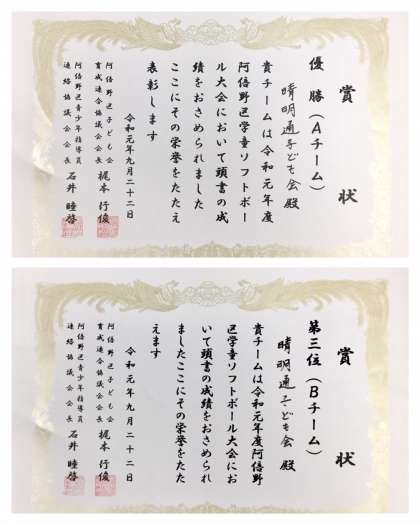 賞状
優勝(Aチーム)
晴明通子ども会 殿
貴チームは令和元年度
阿倍野区学童ソフトボー
ル大会において頭書の成
績をおさめられました
ここにその栄誉をたたえ
表彰します
令和元年九月二十二日
阿倍野区子ども会
育成連合協議会会長 梶本行俊
阿倍野区青少年指導員
連絡協議会会長 石井睦啓
賞状
第三位(Bチーム)
晴明通子ども会 殿
貴チームは令和元年度阿倍野
区学童ソフトボール大会にお
いて頭書の成績をおさめられ
ましたここにその栄誉をたた
えます
令和元年九月二十二日
阿倍野区子ども会
育成連合協議会会長 梶本行俊
阿倍野区青少年指導員
連絡協議会会長 石井睦啓